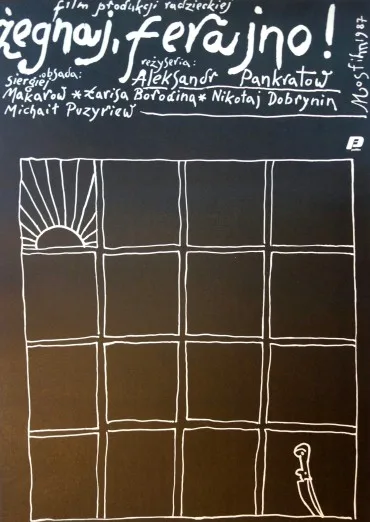 film produkcji radzieckiej
żegnaj, ferajno!
reżyseria:
Aleksandr Pankratow
obsada:
Siergiej
Makarow * Łarisa Borodina * Nikołaj Dobrynin
Michaił Puzyriew
Mosfilm 1987